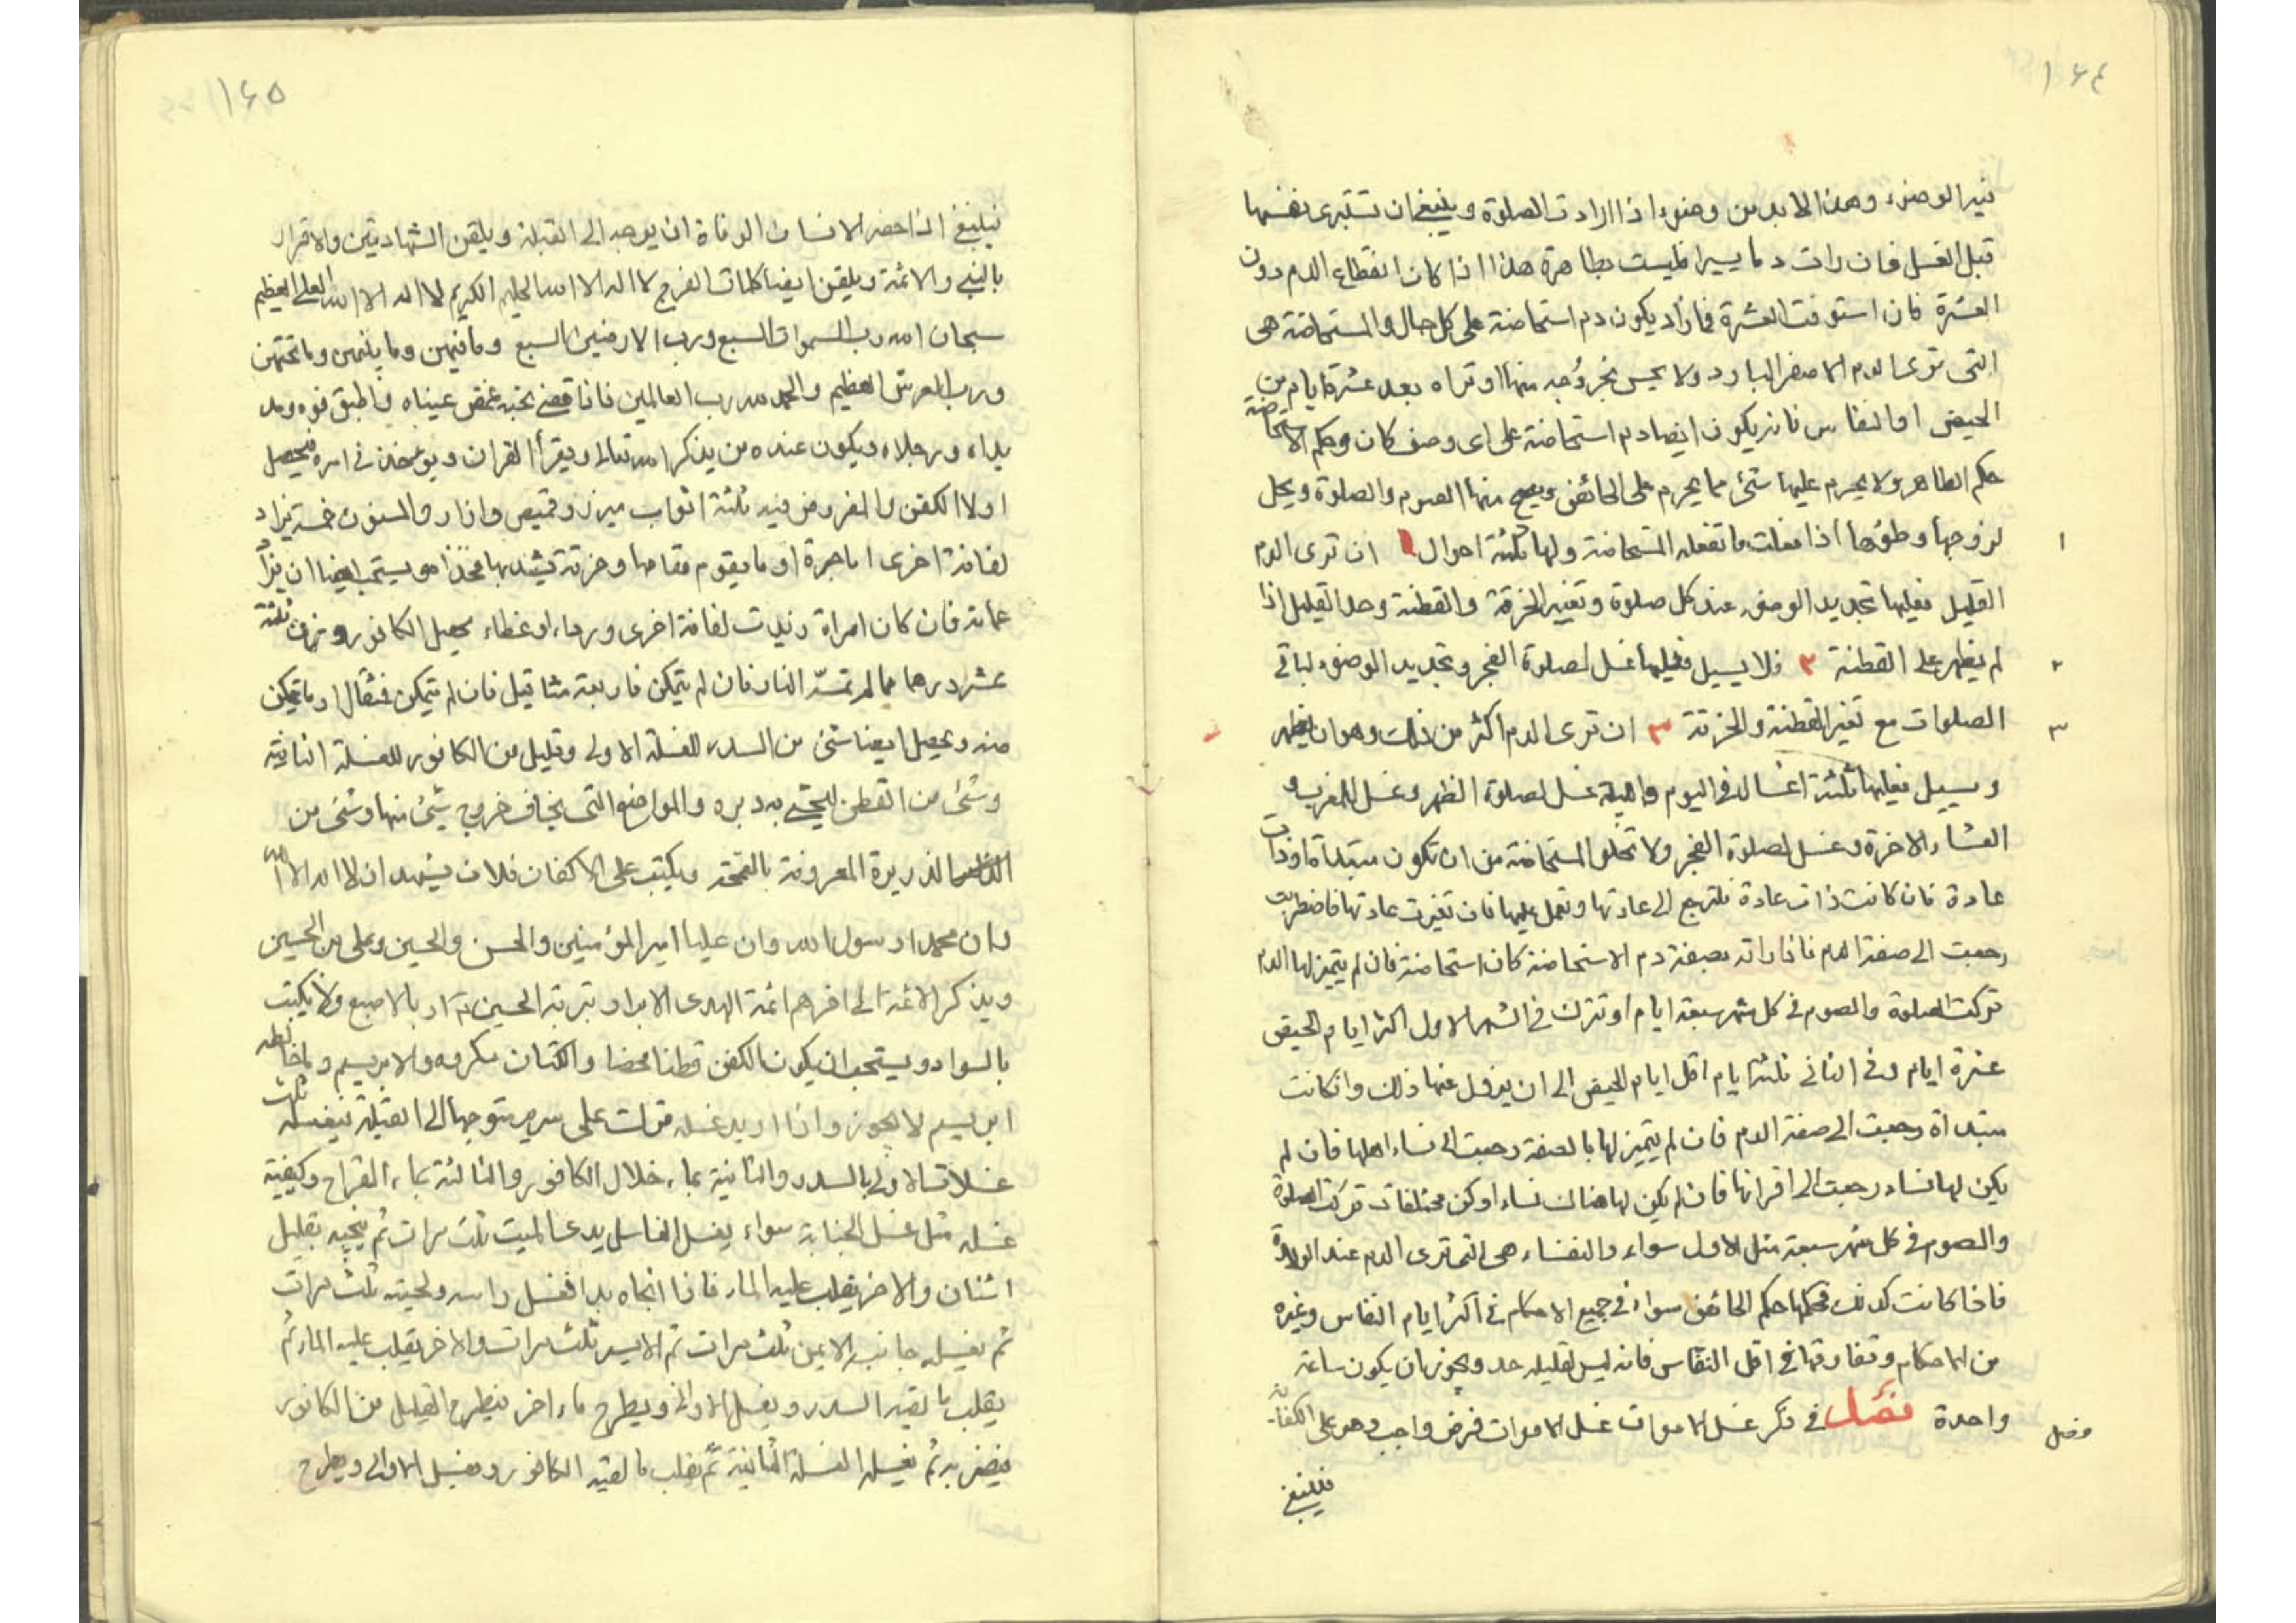 ١٦٤
فيه الوضوء وهذا لا بد من وضوء اذا ارادت الصلوة وينبغي ان تستبرى نفسها
قبل الغسل فان رات دما يسيرا فليست بطاهرة هذا اذا كان انقطاع الدم دون
العشرة فان استوفت العشرة فما زاد يكون دم استحاضة على كل حال والمستحاضة هى
التى ترى الدم الاصفر البارد ولا يحس بخروجه منها او تراه بعد عشرة ايام من
الحيض او النفاس فانه يكون ايضا دم استحاضة على اى وصف كان وحكم الاستحاضة
حكم الطاهر ولا يحرم عليها شئ مما يحرم على الحائض ويصح منها الصوم والصلوة ويحل
لزوجها وطؤها اذا فعلت ما تفعله المستحاضة ولها ثلثة احوال ١ ان ترى الدم
١
القليل فعليها تجديد الوضوء عند كل صلوة وتغيير الخرقة والقطنة وحد القليل اذا
لم يظهر على القطنة ٢ فلا يسيل فعليها غسل لصلوة الفجر وتجديد الوضوء لباقى
٢
الصلوات مع تغير القطنة والخرقة ٣ ان ترى الدم اكثر من ذلك وهو ان يظهر
٣
ويسيل فعليها ثلثة اغسال فى اليوم والليلة غسل لصلوة الظهر وغسل للمغرب و
العشاء الاخرة وغسل لصلوة الفجر ولا تخلو المستحاضة من ان تكون مبتداة او ذات
عادة فان كانت ذات عادة فلترجع الى عادتها وتعمل عليها فان تغيرت عادتها فاضطربت
رجعت الى صفة الدم فاذا راته بصفة دم الاستحاضة كان استحاضة فان لم يتميز لها الدم
تركت الصلوة والصوم فى كل شهر سبعة ايام او تترك فى الشهر الاول اكثر ايام الحيض
عشرة ايام وفى الثانى ثلثة ايام اقل ايام الحيض الى ان يزول عنها ذلك وان كانت
مبتداة رجعت الى صفة الدم فان لم يتميز لها بالصفة رجعت الى نساء اهلها فان لم
يكن لها نساء رجعت الى اقرانها فان لم يكن لها هناك نساء او كن مختلفات تركت الصلوة
والصوم فى كل شهر سبعة مثل الاول سواء والنفساء هى التى ترى الدم عند الولادة
فاذا كانت كذلك فحكمها حكم الحائض سواء فى جميع الاحكام فى اكثر ايام النفاس وغيره
من الاحكام وتفارقها فى اقل النفاس فانه ليس لقليله حد ويجوز ان يكون ساعة
واحدة فصل فى ذكر غسل الاموات غسل الاموات فرض واجب وهو على الكفاية
فصل
فينبغي
١٦٥
فينبغي اذا حضر الانسان الوفاة ان يوجه الى القبلة ويلقن الشهادتين والاقرار
بالنبى والائمة ويلقن ايضا كلمات الفرج لا اله الا الله الحليم الكريم لا اله الا الله العلى العظيم
سبحان الله رب السموات السبع ورب الارضين السبع وما فيهن وما بينهن وما تحتهن
ورب العرش العظيم والحمد لله رب العالمين فاذا قضى نحبه غمض عيناه واطبق فوه ومد
يداه ورجلاه ويكون عنده من يذكر الله تعالى ويقرأ القران ويوخذ فى امره فيحصل
اولا الكفن والمفروض فيه ثلثة اثواب ميزر وقميص وازار والمسنون خمسة يزاد
لفافة اخرى اما حبرة او ما يقوم مقامها وخرقة تشد بها فخذاه ويستحب ايضا ان يزاد
عمامة فان كان امراة زيدت لفافة اخرى ورداء او غطاء يحصل الكافور وزن ثلثة
عشر درهما مما لم تمسه النار فان لم يتمكن فاربعة مثاقيل فان لم يتمكن فمثقال او ما تمكن
منه ويحصل ايضا شئ من السدر للغسلة الاولى وقليل من الكافور للغسلة الثانية
وشئ من القطن ليحشى به دبره والمواضع التى يخاف خروج شئ منها وشئ من
الذريرة المعروفة بالقمحة ويكتب على الاكفان فلان يشهد ان لا اله الا الله
وان محمدا رسول الله وان عليا امير المؤمنين والحسن والحسين وعلى بن الحسين
ويذكر الائمة الى اخرهم ائمة الهدى الابرار بتربة الحسين ع او بالاصبع ولا يكتب
بالسواد ويستحب ان يكون الكفن قطنا محضا والكتان مكروه والابريسم وما خالطه
ابريسم لا يجوز واذا اريد غسله ترك على سرير متوجها الى القبلة فيغسله ثلث
غسلات الاولى بالسدر والثانية بماء خلال الكافور والثالثة بماء القراح وكيفية
غسله مثل غسل الجنابة سواء يغسل الغاسل يد الميت ثلث مرات ثم ينجيه بقليل
اشنان والاخر يقلب عليه الماء فاذا انجاه بدا فغسل راسه ولحيته ثلث مرات
ثم يغسل جانبه الايمن ثلث مرات ثم الايسر ثلث مرات والاخر يقلب عليه الماء ثم
يقلب ما بقية السدر ويغسل الاوانى ويطرح ماء اخر فيطرح القليل من الكافور
فيضربه ثم يغسله الغسلة الثانية ثم يقلب ما بقية الكافور ويغسل الاوانى ويطرح